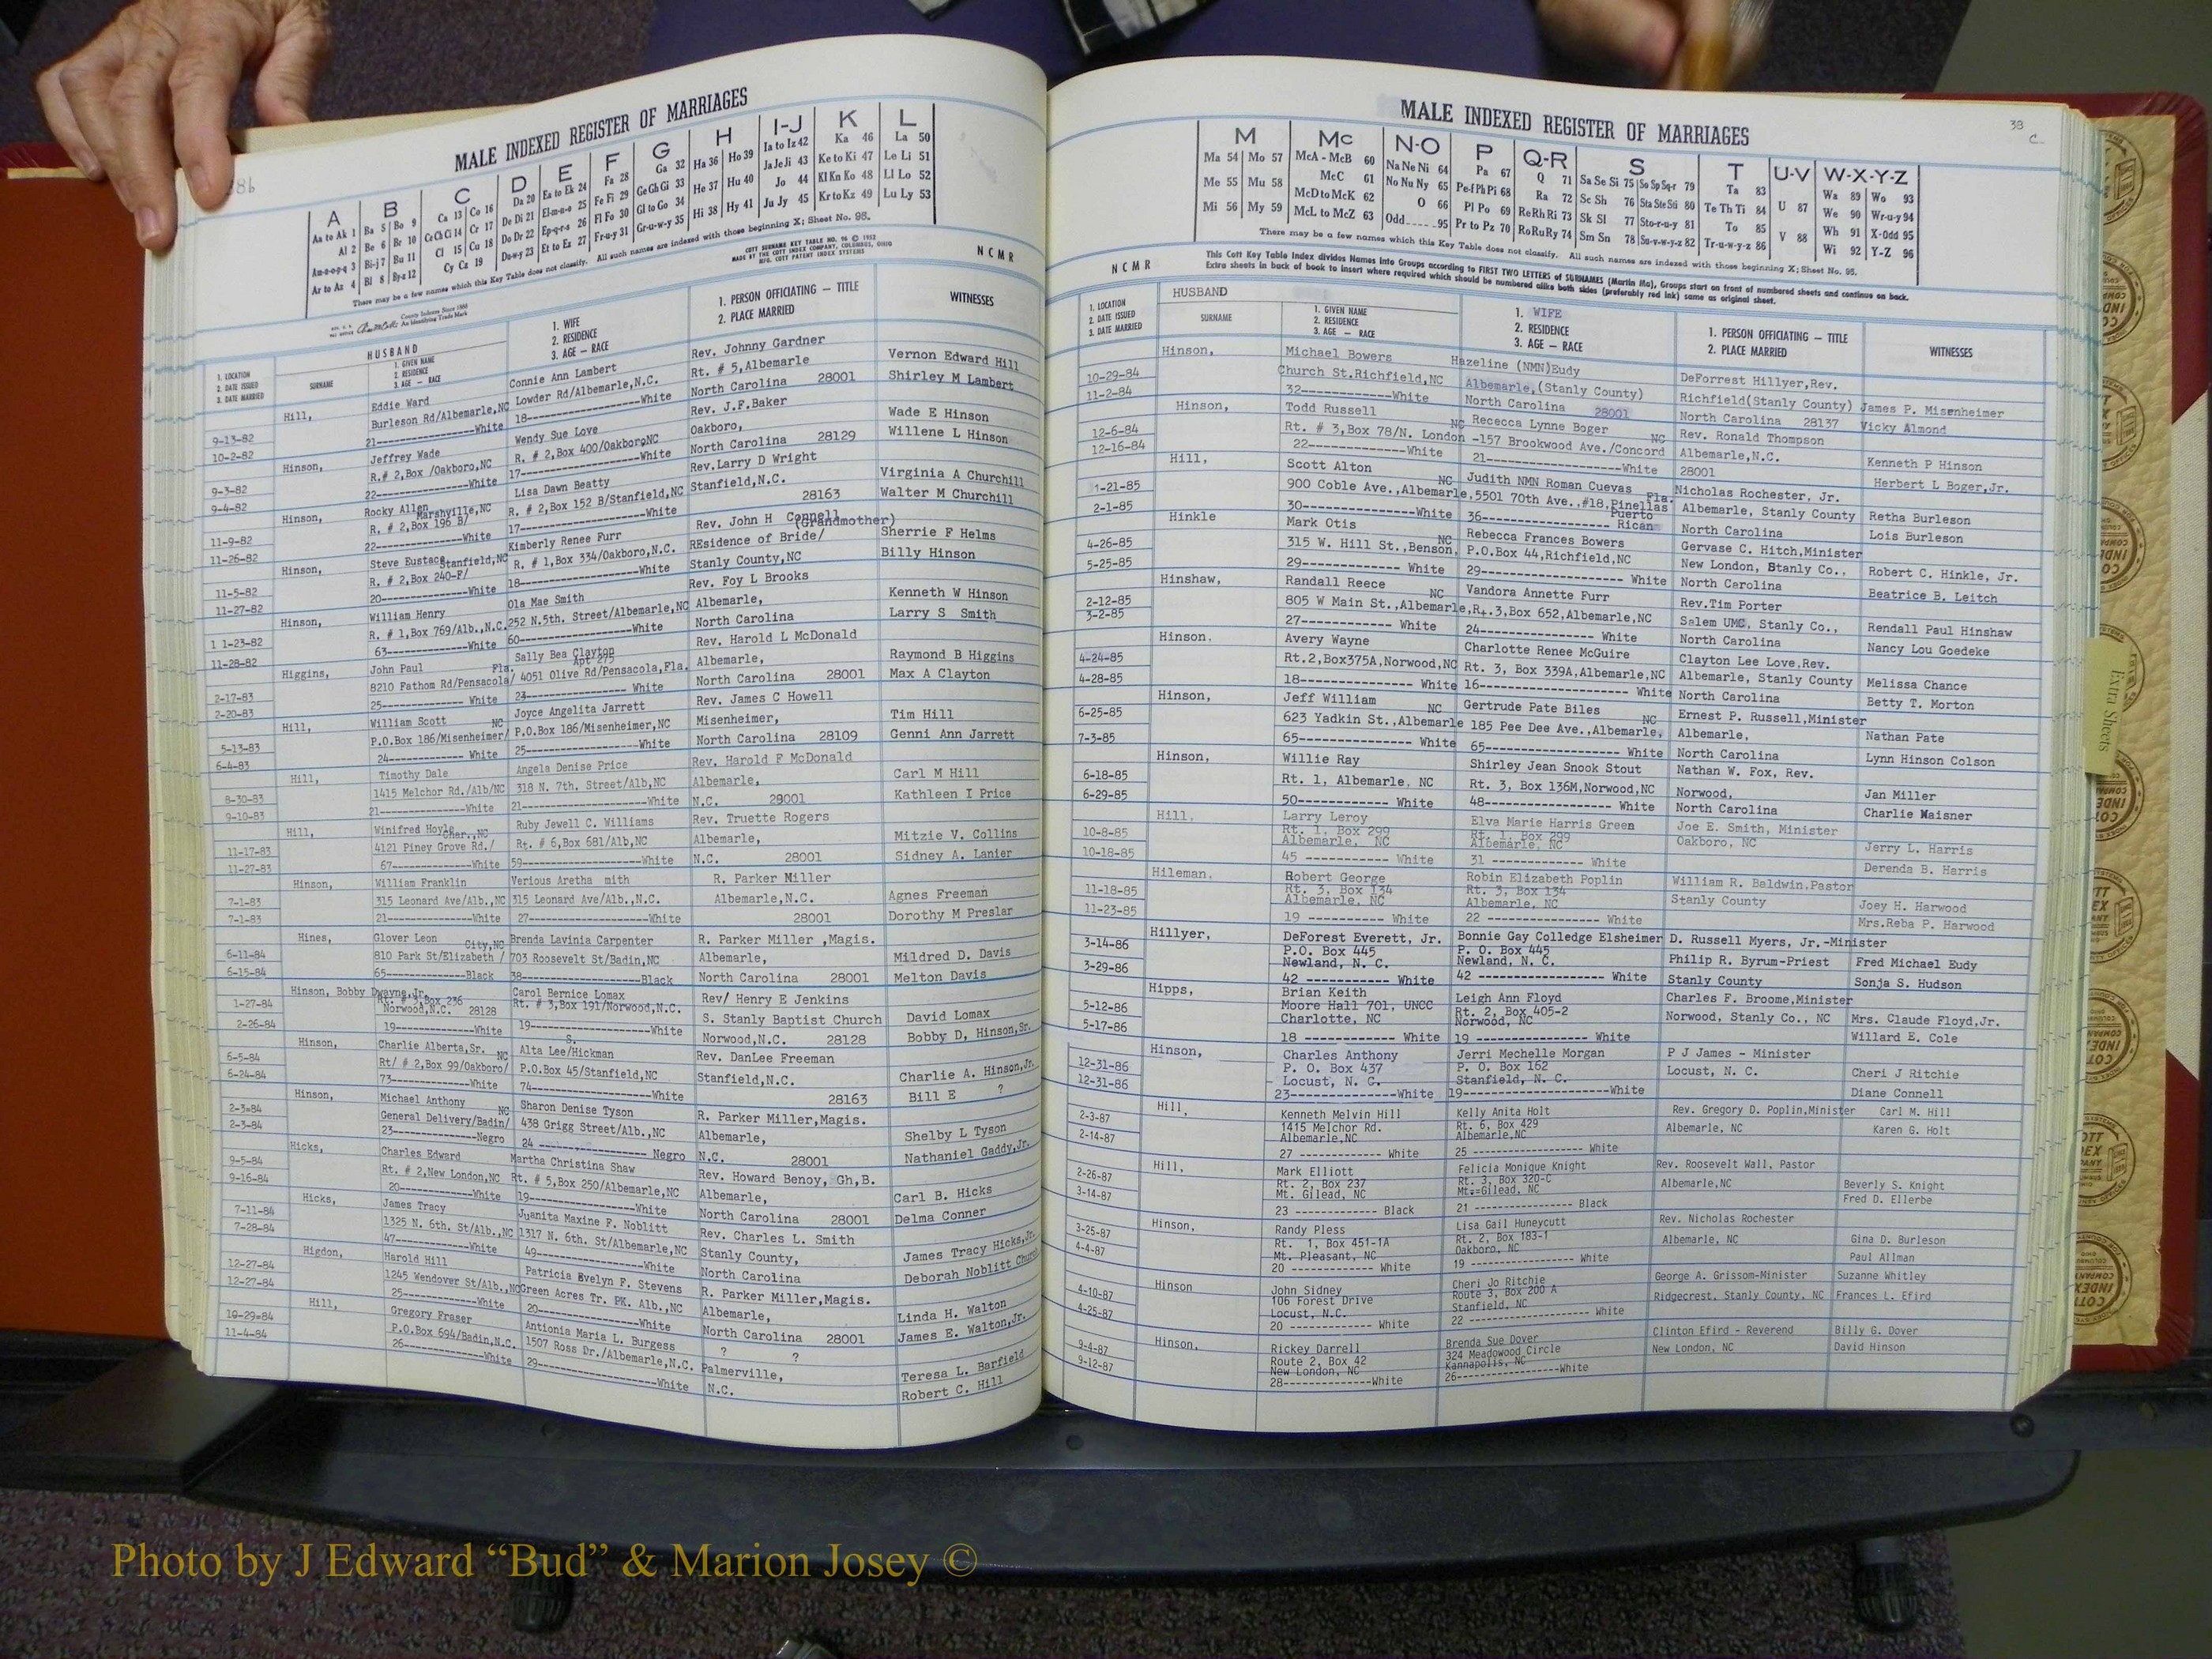 38b
MALE INDEXED REGISTER OF MARRIAGES
A B C D E F G H I-J K L
Aa to Ak 1 Ba 5 Bo 9 Ca 13 Co 16 Da 20 Ea to Ek 24 Fa 28 Ga 32 Ha 36 Ho 39 Ia to Iz 42 Ka 46 La 50
Al 2 Be 6 Br 10 Ce Ch Ci 14 Cr 17 De Di 21 El-m-n-o 25 Fe Fi 29 Ge Gh Gi 33 He 37 Hu 40 Ja Je Ji 43 Ke to Ki 47 Le Li 51
Am-n-o-p-q 3 Bi-j 7 Bu 11 Cl 15 Cu 18 Do Dr 22 Ep-q-r-s 26 Fl Fo 30 Gl to Go 34 Hi 38 Hy 41 Jo 44 Kl Kn Ko 48 Ll Lo 52
Ar to Az 4 Bl 8 By-z 12 Cy Cz 19 Du-w-y 23 Et to Ez 27 Fr-u-y 31 Gr-u-w-y 35 Ju Jy 45 Kr to Kz 49 Lu Ly 53
There may be a few names which this Key Table does not classify. All such names are indexed with those beginning X; Sheet No. 95.
COTT SURNAME KEY TABLE NO. 96 © 1952
MADE BY THE COTT INDEX COMPANY, COLUMBUS, OHIO
MFG. COTT PATENT INDEX SYSTEMS
N C M R
County Indexes Since 1888
An Identifying Trade Mark
1. LOCATION
2. DATE ISSUED
3. DATE MARRIED
HUSBAND
SURNAME
1. GIVEN NAME
2. RESIDENCE
3. AGE — RACE
1. WIFE
2. RESIDENCE
3. AGE — RACE
1. PERSON OFFICIATING - TITLE
2. PLACE MARRIED
WITNESSES
Hill, Eddie Ward Connie Ann Lambert Rev. Johnny Gardner Vernon Edward Hill
9-13-82 Burleson Rd/Albemarle,NC Lowder Rd/Albemarle,N.C. Rt. # 5,Albemarle Shirley M Lambert
10-2-82 21---------------White 18--------------------White North Carolina 28001
Hinson, Jeffrey Wade Wendy Sue Love Rev. J.F.Baker Wade E Hinson
9-3-82 R.# 2,Box /Oakboro,NC R. # 2,Box 400/OakboroNC Oakboro, Willene L Hinson
9-4-82 22---------------White 17-------------------White North Carolina 28129
Hinson, Rocky Allen Marshville,NC Lisa Dawn Beatty Rev.Larry D Wright Virginia A Churchill
11-9-82 R. # 2,Box 196 B/ R. # 2,Box 152 B/Stanfield,NC Stanfield,N.C. Walter M Churchill
11-26-82 22---------------White 17--------------------White 28163
Hinson, Steve Eustace Stanfield,NC Kimberly Renee Furr Rev. John H Connell (Grandmother) Sherrie F Helms
11-5-82 R. # 2,Box 240-F/ R. # 1,Box 334/Oakboro,N.C. REsidence of Bride/ Billy Hinson
11-27-82 20---------------White 18-------------------White Stanly County,NC
Hinson, William Henry Ola Mae Smith Rev. Foy L Brooks Kenneth W Hinson
1 1-23-82 R. # 1,Box 769/Alb.,N.C. 252 N.5th. Street/Albemarle,NC Albemarle, Larry S Smith
11-28-82 63---------------White 60-------------------White North Carolina
Higgins, John Paul Fla. Sally Bea Clayton Apt 275 Rev. Harold L McDonald Raymond B Higgins
2-17-83 8210 Fathom Rd/Pensacola/ 4051 Olive Rd/Pensacola,Fla. Albemarle, Max A Clayton
2-20-83 25-------------- White 23------------------ White North Carolina 28001
Hill, William Scott NC Joyce Angelita Jarrett Rev. James C Howell Tim Hill
5-13-83 P.O.Box 186/Misenheimer/ P.O.Box 186/Misenheimer,NC Misenheimer, Genni Ann Jarrett
6-4-83 24-------------- White 25-------------------White North Carolina 28109
Hill, Timothy Dale Angela Denise Price Rev. Harold F McDonald Carl M Hill
8-30-83 1415 Melchor Rd./Alb/NC 318 N. 7th. Street/Alb,NC Albemarle, Kathleen I Price
9-10-83 21---------------White 21-------------------White N.C. 28001
Hill, Winifred Hoyle Char.,NC Ruby Jewell C. Williams Rev. Truette Rogers Mitzie V. Collins
11-17-83 4121 Piney Grove Rd./ Rt. # 6,Box 681/Alb,NC Albemarle, Sidney A. Lanier
11-27-83 67--------------White 59-------------------White N.C. 28001
Hinson, William Franklin Verious Aretha mith R. Parker Miller Agnes Freeman
7-1-83 315 Leonard Ave/Alb.,NC 315 Leonard Ave/Alb.,N.C. Albemarle,N.C. Dorothy M Preslar
7-1-83 21---------------White 27-------------------White 28001
Hines, Glover Leon City,NC Brenda Lavinia Carpenter R. Parker Miller ,Magis. Mildred D. Davis
6-11-84 810 Park St/Elizabeth / 703 Roosevelt St/Badin,NC Albemarle, Melton Davis
6-15-84 65---------------Black 38-------------------Black North Carolina 28001
Hinson, Bobby Dwayne,Jr. Carol Bernice Lomax Rev/ Henry E Jenkins David Lomax
1-27-84 Rt. # 3,Box 236 Rt. # 3,Box 191/Norwood,N.C. S. Stanly Baptist Church Bobby D, Hinson,Sr.
Norwood,N.C. 28128
2-26-84 19---------------White 19-------------------White Norwood,N.C. 28128
Hinson, Charlie Alberta,Sr. NC Alta Lee/Hickman S. Rev. DanLee Freeman Charlie A. Hinson,Jr.
6-5-84 Rt/ # 2,Box 99/Oakboro/ P.O.Box 45/Stanfield,NC Stanfield,N.C. Bill E ?
6-24-84 73---------------White 74-------------------White 28163
Hinson, Michael Anthony NC Sharon Denise Tyson R. Parker Miller,Magis. Shelby L Tyson
2-3=84 General Delivery/Badin/ 438 Grigg Street/Alb.,NC Albemarle, Nathaniel Gaddy,Jr.
2-3-84 23---------------Negro 24 ------------------ Negro N.C. 28001
Hicks, Charles Edward Martha Christina Shaw Rev. Howard Benoy, Gh,B. Carl B. Hicks
9-5-84 Rt. # 2,New London,NC Rt. # 5,Box 250/Albemarle,NC Albemarle, Delma Conner
9-16-84 20---------------White 19-------------------White North Carolina 28001
Hicks, James Tracy Juanita Maxine F. Noblitt Rev. Charles L. Smith James Tracy Hicks,Jr.
7-11-84 1325 N. 6th. St/Alb.,NC 1317 N. 6th. St/Albemarle,NC Stanly County, Deborah Noblitt Church
7-28-84 47---------------White 49-------------------White North Carolina
Higdon, Harold Hill Patricia Evelyn F. Stevens R. Parker Miller,Magis. Linda H. Walton
12-27-84 1245 Wendover St/Alb.,NC Green Acres Tr. PK. Alb.,NC Albemarle, James E. Walton,Jr.
12-27-84 25---------------White 20-------------------White North Carolina 28001
Hill, Gregory Fraser Antionia Maria L. Burgess ? ? Teresa L. Barfield
10-29-84 P.O.Box 694/Badin,N.C. 1507 Ross Dr./Albemarle,N.C. Palmerville, Robert C. Hill
11-4-84 26---------------White 29-------------------White N.C.
38
C
MALE INDEXED REGISTER OF MARRIAGES
M Mc N-O P Q-R S T U-V W-X-Y-Z
Ma 54 Mo 57 McA - McB 60 Na Ne Ni 64 Pa 67 Q 71 Sa Se Si 75 So Sp Sq-r 79 Ta 83 U 87 Wa 89 Wo 93
Me 55 Mu 58 McC 61 No Nu Ny 65 Pe-f Ph Pi 68 Ra 72 Sc Sh 76 Sta Ste Sti 80 Te Th Ti 84 V 88 We 90 Wr-u-y 94
Mi 56 My 59 McD to McK 62 O 66 Pl Po 69 Re Rh Ri 73 Sk Sl 77 Sto-r-u-y 81 To 85 Wh 91 X-Odd 95
McL to McZ 63 Odd 95 Pr to Pz 70 Ro Ru Ry 74 Sm Sn 78 Su-v-w-y-z 82 Tr-u-w-y-z 86 Wi 92 Y-Z 96
There may be a few names which this Key Table does not classify. All such names are indexed with those beginning X; Sheet No. 95.
N C M R
This Cott Key Table Index divides Names into Groups according to FIRST TWO LETTERS of SURNAMES (Martin Ma), Groups start on front of numbered sheets and continue on back.
Extra sheets in back of book to insert where required which should be numbered alike both sides (preferably red ink) same as original sheet.
1. LOCATION
2. DATE ISSUED
3. DATE MARRIED
HUSBAND
SURNAME
1. GIVEN NAME
2. RESIDENCE
3. AGE — RACE
1. WIFE
2. RESIDENCE
3. AGE — RACE
1. PERSON OFFICIATING - TITLE
2. PLACE MARRIED
WITNESSES
Hinson, Michael Bowers Hazeline (NMN)Eudy DeForrest Hillyer,Rev.
10-29-84 Church St.Richfield,NC Albemarle,(Stanly County) Richfield(Stanly County) James P. Misenheimer
11-2-84 32--------------White North Carolina 28001 North Carolina 28137 Vicky Almond
Hinson, Todd Russell NC Rececca Lynne Boger NC Rev. Ronald Thompson
12-6-84 Rt. # 3,Box 78/N. London -157 Brookwood Ave./Concord Albemarle,N.C. Kenneth P Hinson
12-16-84 22--------------White 21-------------------White 28001 Herbert L Boger,Jr.
Hill, Scott Alton NC Judith NMN Roman Cuevas Fla. Nicholas Rochester, Jr.
1-21-85 900 Coble Ave.,Albemarle,5501 70th Ave.,#18,Pinellas Albemarle, Stanly County Retha Burleson
2-1-85 30----------------White 36---------------- Puerto Rican North Carolina Lois Burleson
Hinkle Mark Otis NC Rebecca Frances Bowers Gervase C. Hitch,Minister
4-26-85 315 W. Hill St.,Benson, P.O.Box 44,Richfield,NC New London, Stanly Co., Robert C. Hinkle, Jr.
5-25-85 29-------------- White 29------------------- White North Carolina Beatrice B. Leitch
Hinshaw, Randall Reece NC Vandora Annette Furr Rev.Tim Porter
2-12-85 805 W Main St.,Albemarle,Rt.3,Box 652,Albemarle,NC Salem UMC, Stanly Co., Rendall Paul Hinshaw
3-2-85 27-------------- White 24----------------- White North Carolina Nancy Lou Goedeke
Hinson, Avery Wayne Charlotte Renee McGuire Clayton Lee Love,Rev.
4-24-85 Rt.2,Box375A,Norwood,NC Rt. 3, Box 339A,Albemarle,NC Albemarle, Stanly County Melissa Chance
4-28-85 18---------------- White 16------------------- White North Carolina Betty T. Morton
Hinson, Jeff William NC Gertrude Pate Biles NC Ernest P. Russell,Minister
6-25-85 623 Yadkin St.,Albemarle 185 Pee Dee Ave.,Albemarle, Albemarle, Nathan Pate
7-3-85 65---------------- White 65------------------ White North Carolina Lynn Hinson Colson
Hinson, Willie Ray Shirley Jean Snook Stout Nathan W. Fox, Rev.
6-18-85 Rt. 1, Albemarle, NC Rt. 3, Box 136M,Norwood,NC Norwood, Jan Miller
6-29-85 50------------ White 48----------------- White North Carolina Charlie Waisner
Hill, Larry Leroy Elva Marie Harris Green Joe E. Smith, Minister
10-8-85 Rt. 1, Box 299 Rt. 1, Box 299 Oakboro, NC Jerry L. Harris
Albemarle, NC Albemarle, NC
10-18-85 45 ----------- White 31 ------------ White Derenda B. Harris
Hileman, Robert George Robin Elizabeth Poplin William R. Baldwin,Pastor
11-18-85 Rt. 3, Box 134 Rt. 3, Box 134 Stanly County Joey H. Harwood
Albemarle, NC Albemarle, NC
11-23-85 19 ---------- White 22 ---------------- White Mrs.Reba P. Harwood
Hillyer, DeForest Everett, Jr. Bonnie Gay Colledge Elsheimer D. Russell Myers, Jr.-Minister
3-14-86 P.O. Box 445 P. O. Box 445 Philip R. Byrum-Priest Fred Michael Eudy
Newland, N. C. Newland, N. C.
3-29-86 42 ----------- White 42 ---------------- White Stanly County Sonja S. Hudson
Hipps, Brian Keith Leigh Ann Floyd Charles F. Broome,Minister
5-12-86 Moore Hall 701, UNCC Rt. 2, Box 405-2 Norwood, Stanly Co., NC Mrs. Claude Floyd,Jr.
5-17-86 Charlotte, NC Norwood, NC Willard E. Cole
18 ------------- White 19 ----------------- White
Hinson, Charles Anthony Jerri Mechelle Morgan P J James - Minister
12-31-86 P. O. Box 437 P. O. Box 162 Locust, N. C. Cheri J Ritchie
12-31-86 Locust, N. C. Stanfield, N. C. Diane Connell
23---------------White 19------------------White
Hill, Kenneth Melvin Hill Kelly Anita Holt Rev. Gregory D. Poplin,Minister Carl M. Hill
2-3-87 1415 Melchor Rd. Rt. 6, Box 429 Albemarle, NC Karen G. Holt
2-14-87 Albemarle,NC Albemarle,NC
27 ------------ White 25 --------------- White
Hill, Mark Elliott Felicia Monique Knight Rev. Roosevelt Wall, Pastor
2-26-87 Rt. 2, Box 237 Rt. 3, Box 320-C Albemarle,NC Beverly S. Knight
3-14-87 Mt. Gilead, NC Mt.=Gilead, NC Fred D. Ellerbe
23 ------------- Black 21 --------------- Black
Hinson, Randy Pless Lisa Gail Huneycutt Rev. Nicholas Rochester
3-25-87 Rt. 1, Box 451-1A Rt. 2, Box 183-1 Albemarle, NC Gina D. Burleson
4-4-87 Mt. Pleasant, NC Oakboro, NC Paul Allman
20 ------------ White 19 -------------- White
Hinson John Sidney Cheri Jo Ritchie George A. Grissom-Minister Suzanne Whitley
4-10-87 106 Forest Drive Route 3, Box 200 A Ridgecrest, Stanly County, NC Frances L. Efird
4-25-87 Locust, N.C. Stanfield, NC
20 ------------ White 22 ---------------- White
Hinson, Rickey Darrell Brenda Sue Dover Clinton Efird - Reverend Billy G. Dover
9-4-87 Route 2, Box 42 324 Meadowood Circle New London, NC David Hinson
9-12-87 New London, NC Kannapolis, NC
28-------------White 26----------------White
Extra Sheets
Photo by J Edward “Bud” & Marion Josey ©